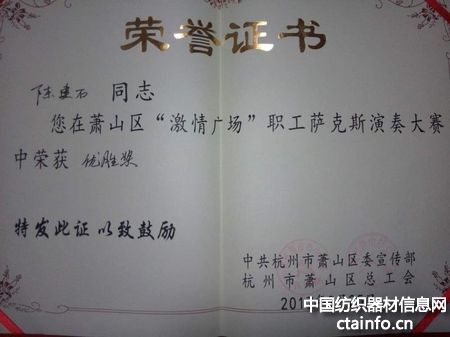 荣誉证书
陈建石 同志
您在萧山区“激情广场”职工萨克斯演奏大赛
中荣获 优胜奖
特发此证 以致鼓励
中共杭州市萧山区委宣传部
杭州市萧山区总工会
201
中国纺织器材信息网
ctainfo.cn